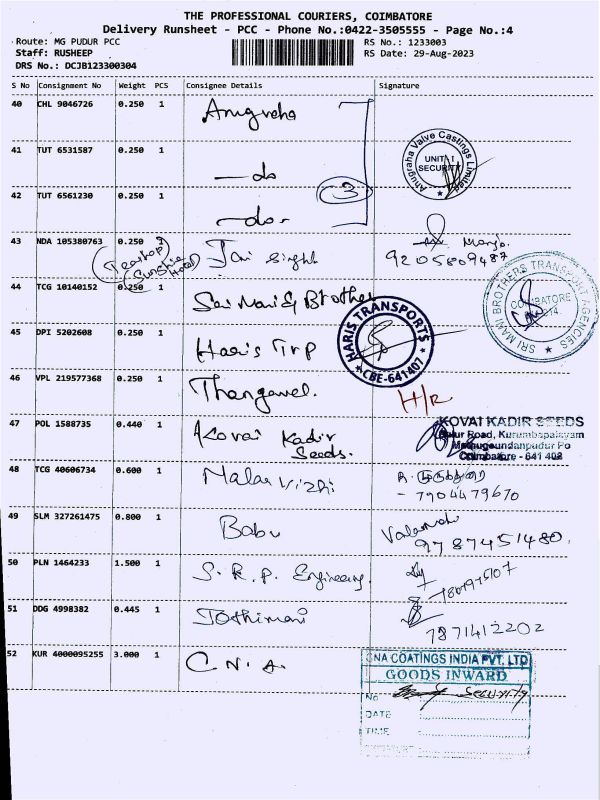 THE PROFESSIONAL COURIERS, COIMBATORE
Delivery Runsheet - PCC - Phone No.:0422-3505555 - Page No.:4
Route: MG PUDUR PCC
Staff: RUSHEEP
DRS No.: DCJB123300304
RS No.: 1233003
RS Date: 29-Aug-2023
S No Consignment No Weight PCS Consignee Details Signature
40 CHL 9046726 0.250 1 Anugraha
41 TUT 6531587 0.250 1 —do
Anugraha Valve Castings Limited
UNIT I
SECURITY
42 TUT 6561230 0.250 1 —do-
3
43 NDA 105380763 0.250 Jai Singhl
9205809487
Sunshie
Hotel
44 TCG 10140152 0.250 1 Sri Mani & Brother
SRI MANI BROTHERS TRANSPORT AGENCIES
COIMBATORE
45 DPI 5202608 0.250 1 Haris Trp
HARIS TRANSPORTS
CBE-641407
46 VPL 219577368 0.250 1 Thangavel.
H/R
47 POL 1588735 0.440 1 Kovai Kadir
Seeds.
KOVAI KADIR SEEDS
Road, Kurumbapalayam
Mathugoundanpudur Po
Coimbatore - 641 408
48 TCG 40606734 0.600 1 Malar Vizhi
- 7904479670
49 SLM 327261475 0.800 1 Babu
9787451480.
50 PLN 1464233 1.500 1 S.R.P. Engineering.
51 DDG 4998382 0.445 1 Jothimani
7871412202
52 KUR 4000095255 3.000 1 C.N.A.
CNA COATINGS INDIA PVT. LTD
GOODS INWARD
No
DATE
TIME